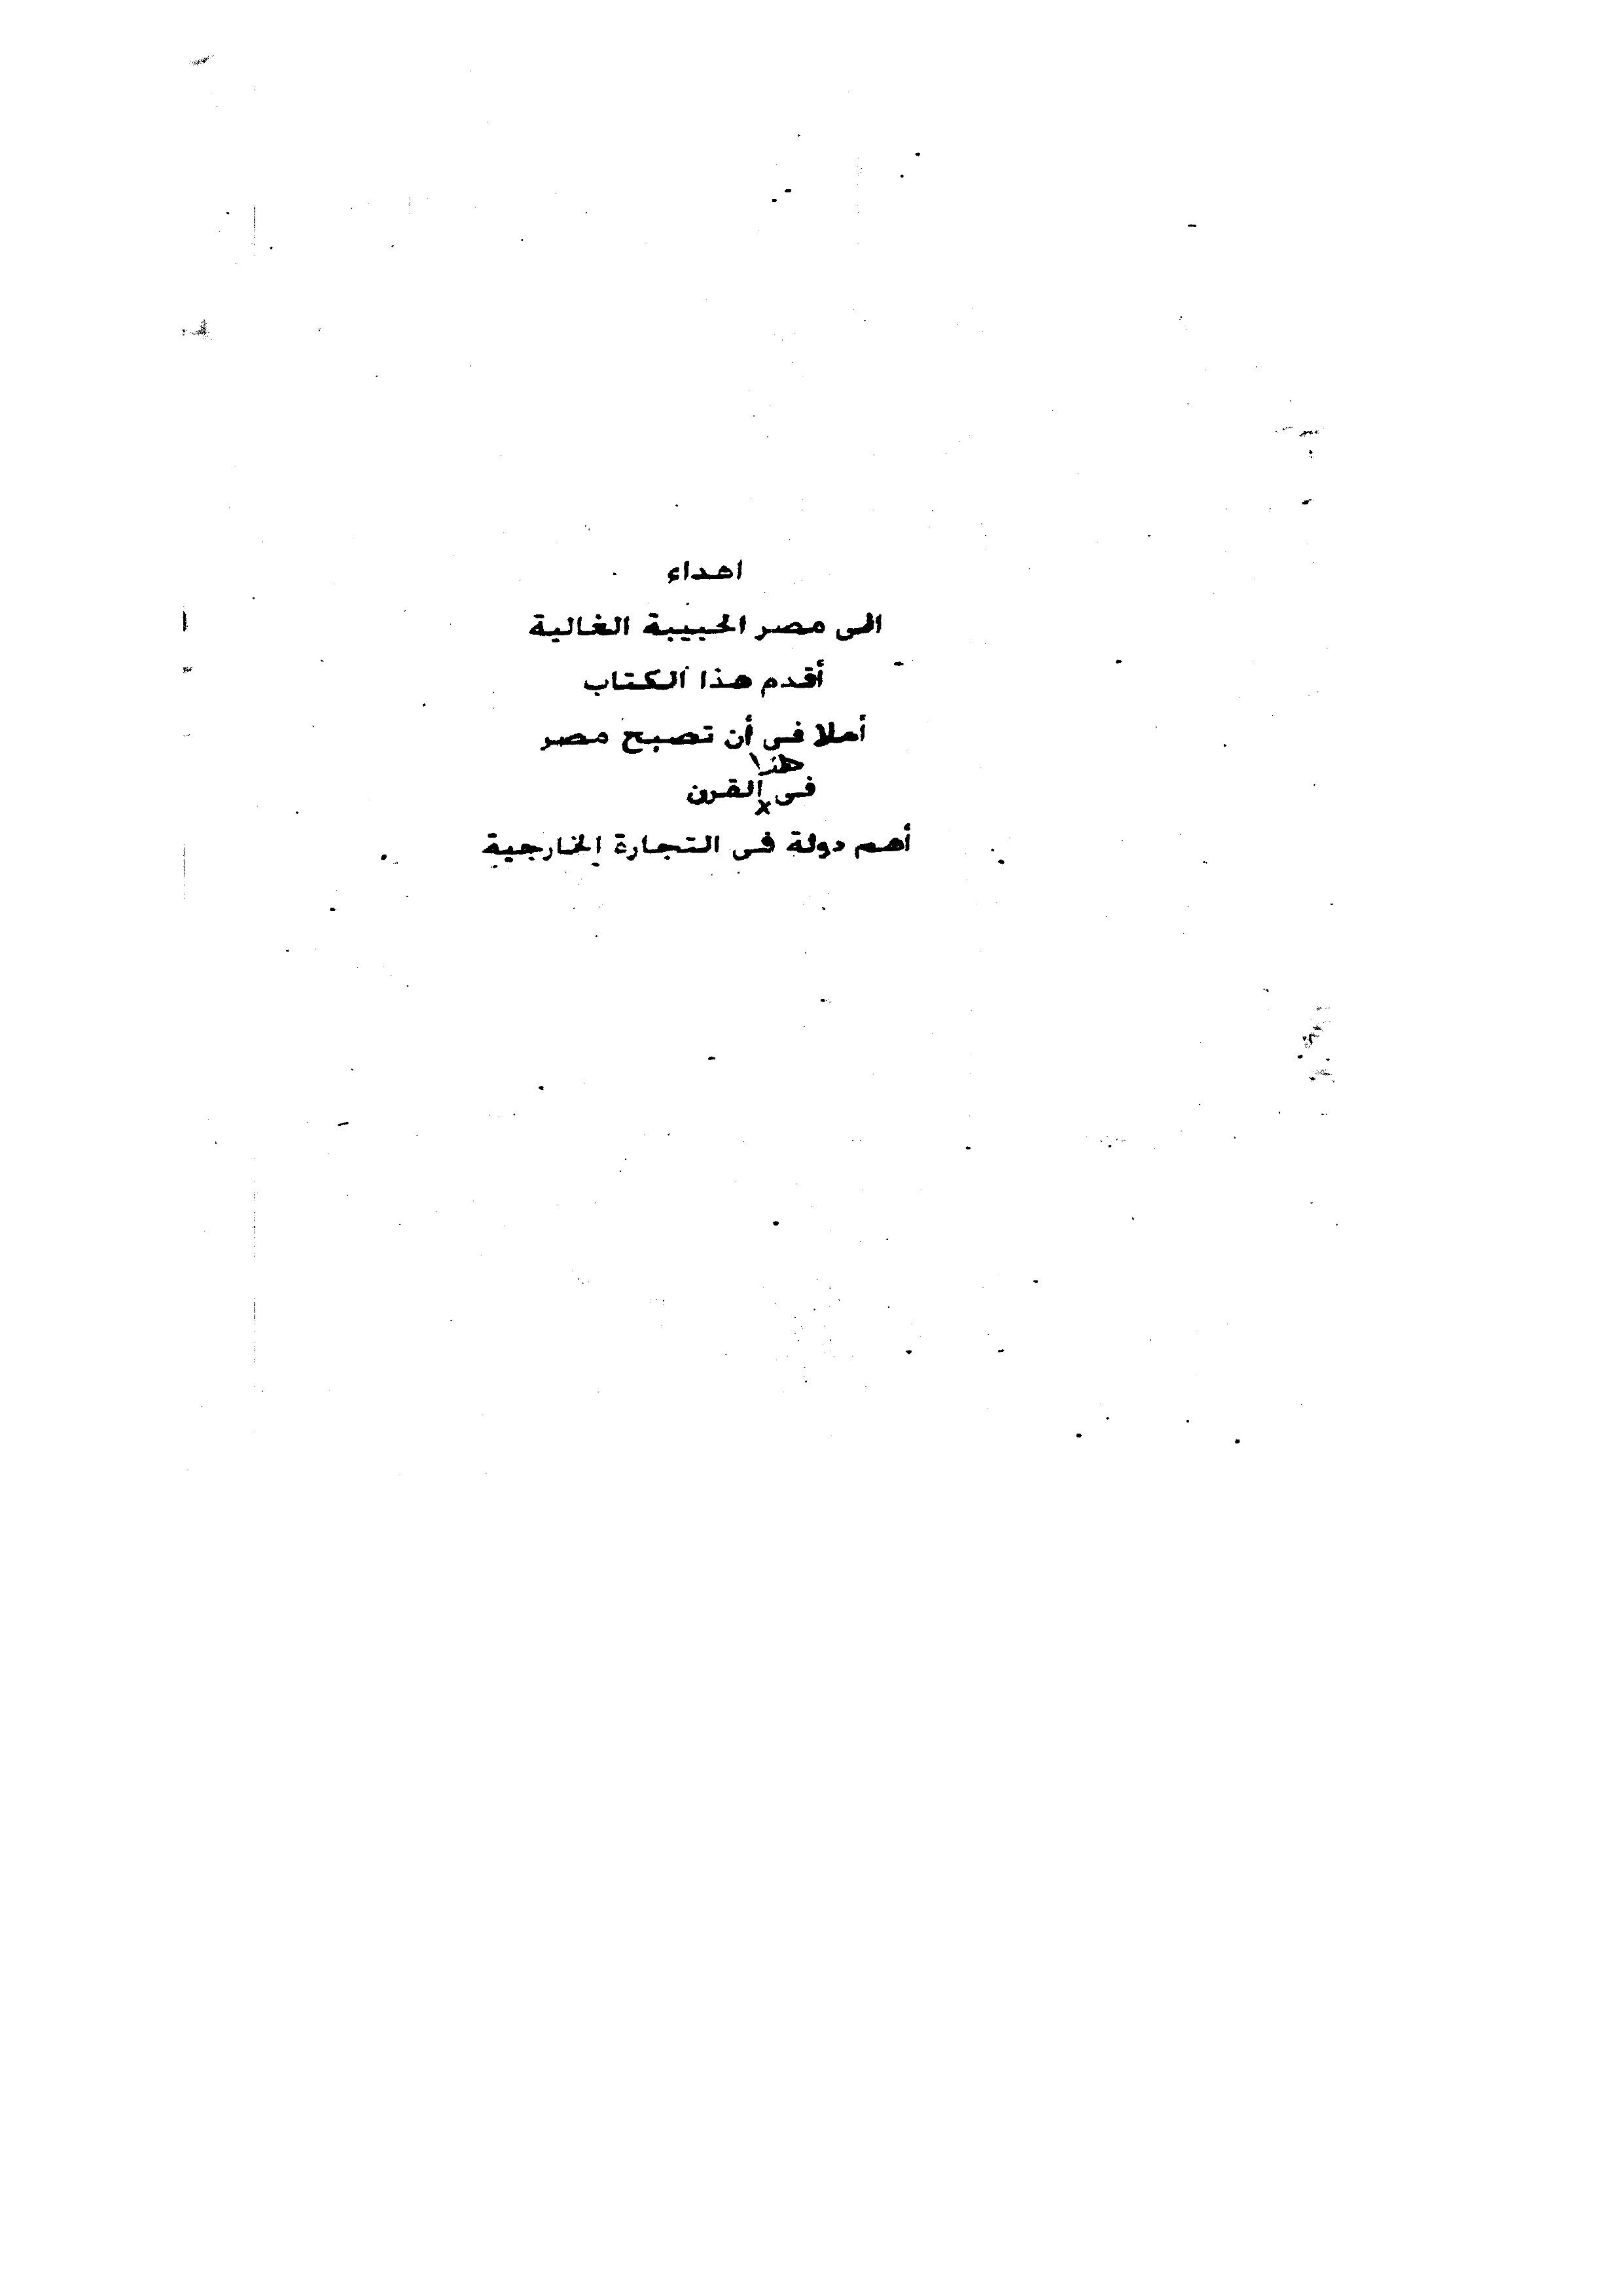 اهداء
الى مصر الحبيبة الغالية
أقدم هذا الكتاب
أملا فى أن تصبح مصر
هذا
فى القرن
أهم دولة فى التجارة الخارجية